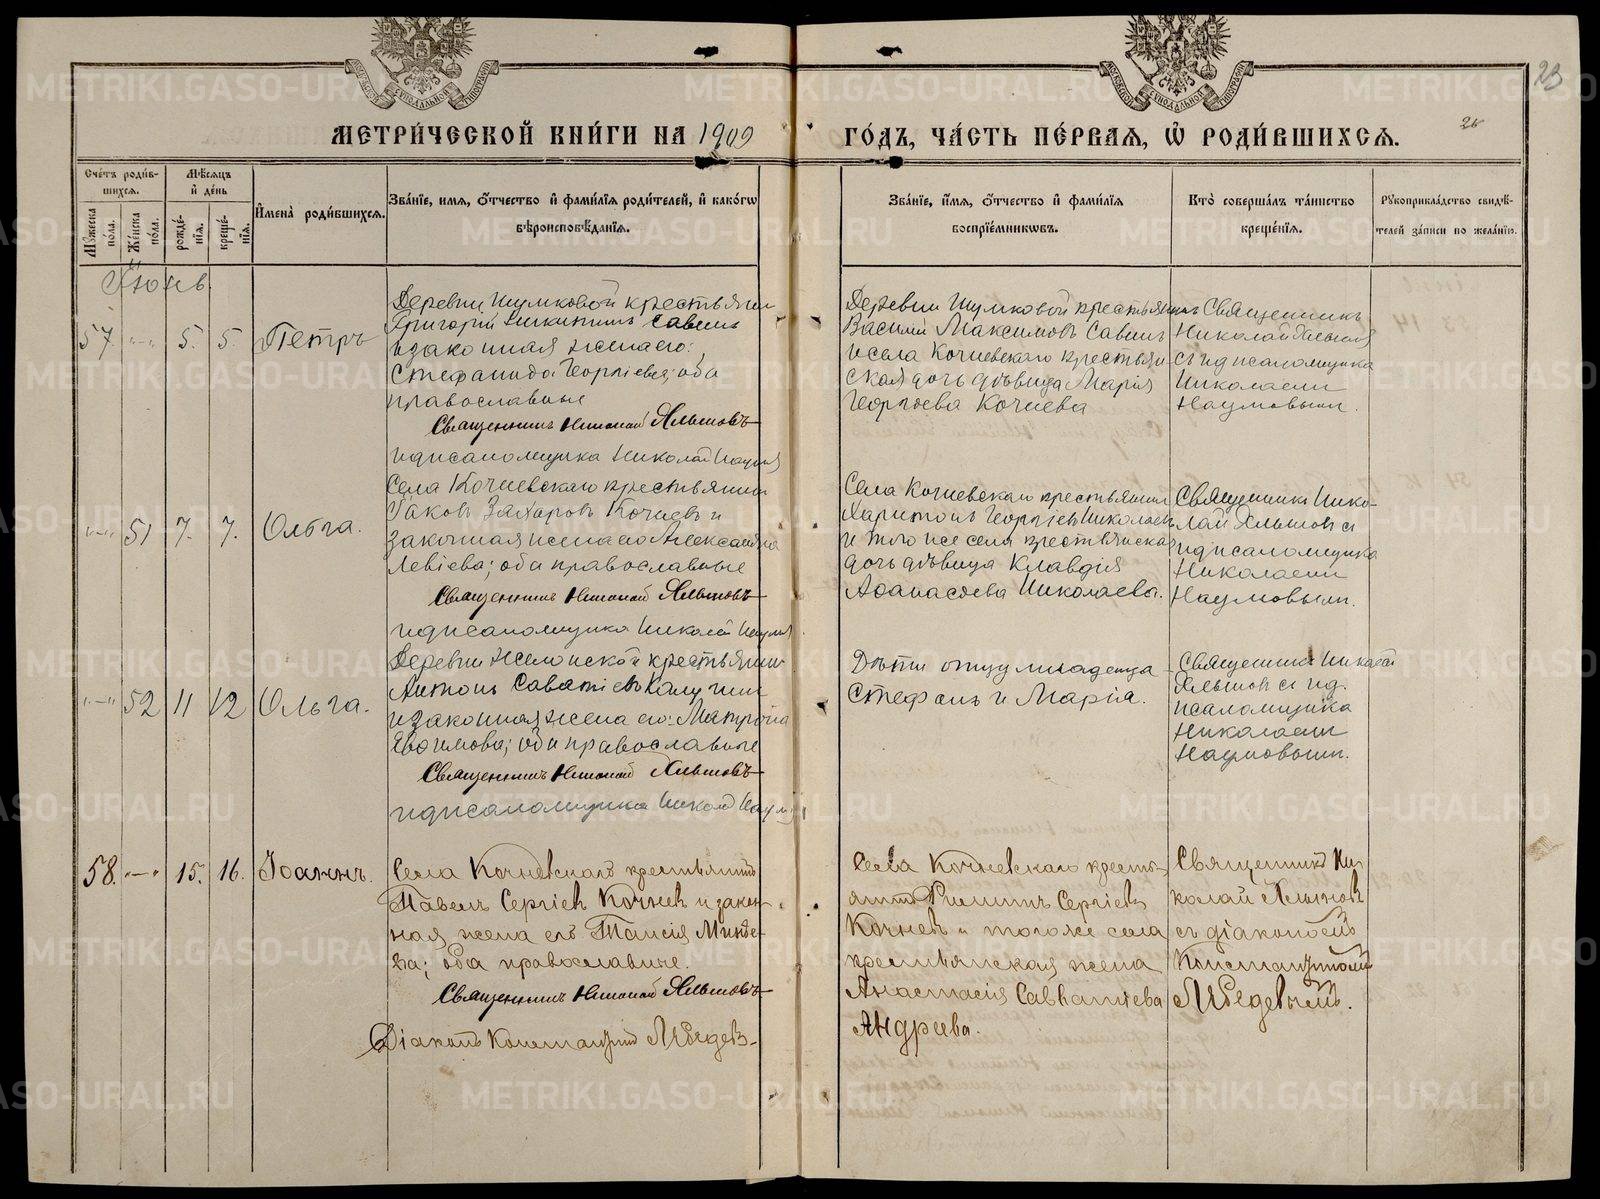 23
26
МЕТРИ́ЧЕСКОЙ КНИ́ГИ НА 1909
ГО́ДЪ, ЧА́СТЬ ПЕ́РВАЯ, Ѽ РОДИ́ВШИХСЯ.
Сче́тъ роди́в-
шихся.
Му́жеска по́ла.
Же́нска по́ла.
Мѣ́сяцъ и де́нь
рожде́-
нія.
креще́-
нія.
Имена̀ роди́вшихся.
Зва́ніе, имя, о́тчество и фами́лія роди́телей, и како́гѡ
вѣроисповѣ́данія.
Зва́ніе, и́мя, о́тчество и фами́лія
воспріе́мникѡвъ.
Кто̀ соверша́лъ та́инство
креще́нія.
Рукоприкла́дство свидѣ́-
телей за́писи по жела́нію.
Іюнь
57. 5. 5. Петръ
Деревни Шумковой крестьянин
Григорій Никитинъ Савинъ
и законная жена его:
Стефанида Георгіева; оба
православные
Священникъ Николай Хлыновъ
и д. псаломщика Николай Наумов
Деревни Шумковой крестьянинъ
Василій Максимовъ Савинъ
и села Кочневскаго крестьян-
ская дочь дѣвица Марія
Георгіева Кочнева
Священникъ
Николай Хлынов
съ и д псаломщика
Николаем
Наумовым.
51 7. 7. Ольга.
Села Кочневскаго крестьянин
Іаковъ Захаровъ Кочневъ и
законная жена его Александра
Левіева; оба православные
Священникъ Николай Хлыновъ
и д псаломщика Николай Наумов
Села Кочневскаго крестьянин
Харитонъ Георгіевъ Николаевъ
и того же села крестьянская
дочь дѣвица Клавдія
Аѳанасіева Николаева.
Священникъ Нико-
лай Хлынов с
и д псаломщика
Николаем
Наумовым.
52 11 12 Ольга.
Деревни крестьянин
Антонъ Саватіевъ
и законная жена его: Матрона
Евѳимова; оба православные
Священникъ Николай Хлыновъ
и д псаломщика Николай Наум
Дѣти отцу младенца
Стефанъ и Марія.
Священникъ Николай
Хлынов с и д.
псаломщика
Николаем
Наумовым.
58. 15. 16. Іоаннъ.
Села Кочневскаго крестьянинъ
Павелъ Сергіевъ Кочневъ и закон-
ная жена его Таисія
оба православные.
Священникъ Николай Хлыновъ
Діаконъ Константинъ Лебедевъ
Села Кочневскаго кресть-
янинъ Филиппъ Сергіевъ
Кочневъ и тогоже села
крестьянская жена
Анастасія Савватіева
Андреева.
Священникъ Ни-
колай Хлыновъ
съ діакономъ
Константиномъ
Лебедевымъ.
METRIKI.GASO-URAL.RU